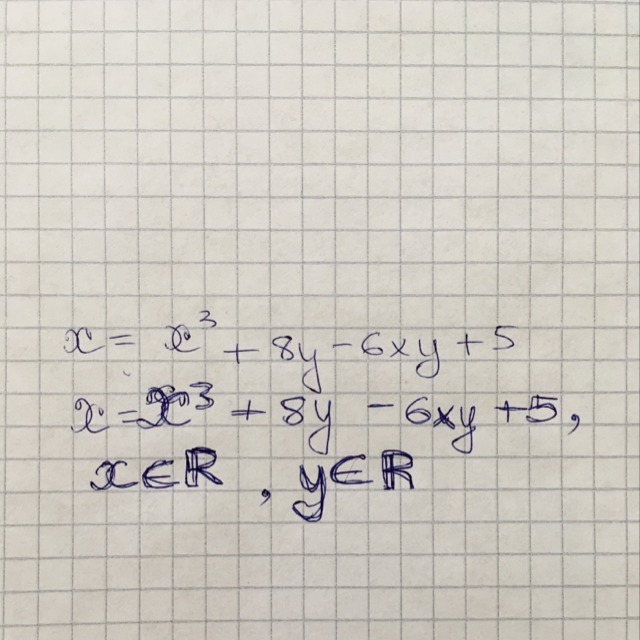 x = x³ + 8y - 6xy + 5
x = x³ + 8y - 6xy + 5,
x∈ℝ, y∈ℝ